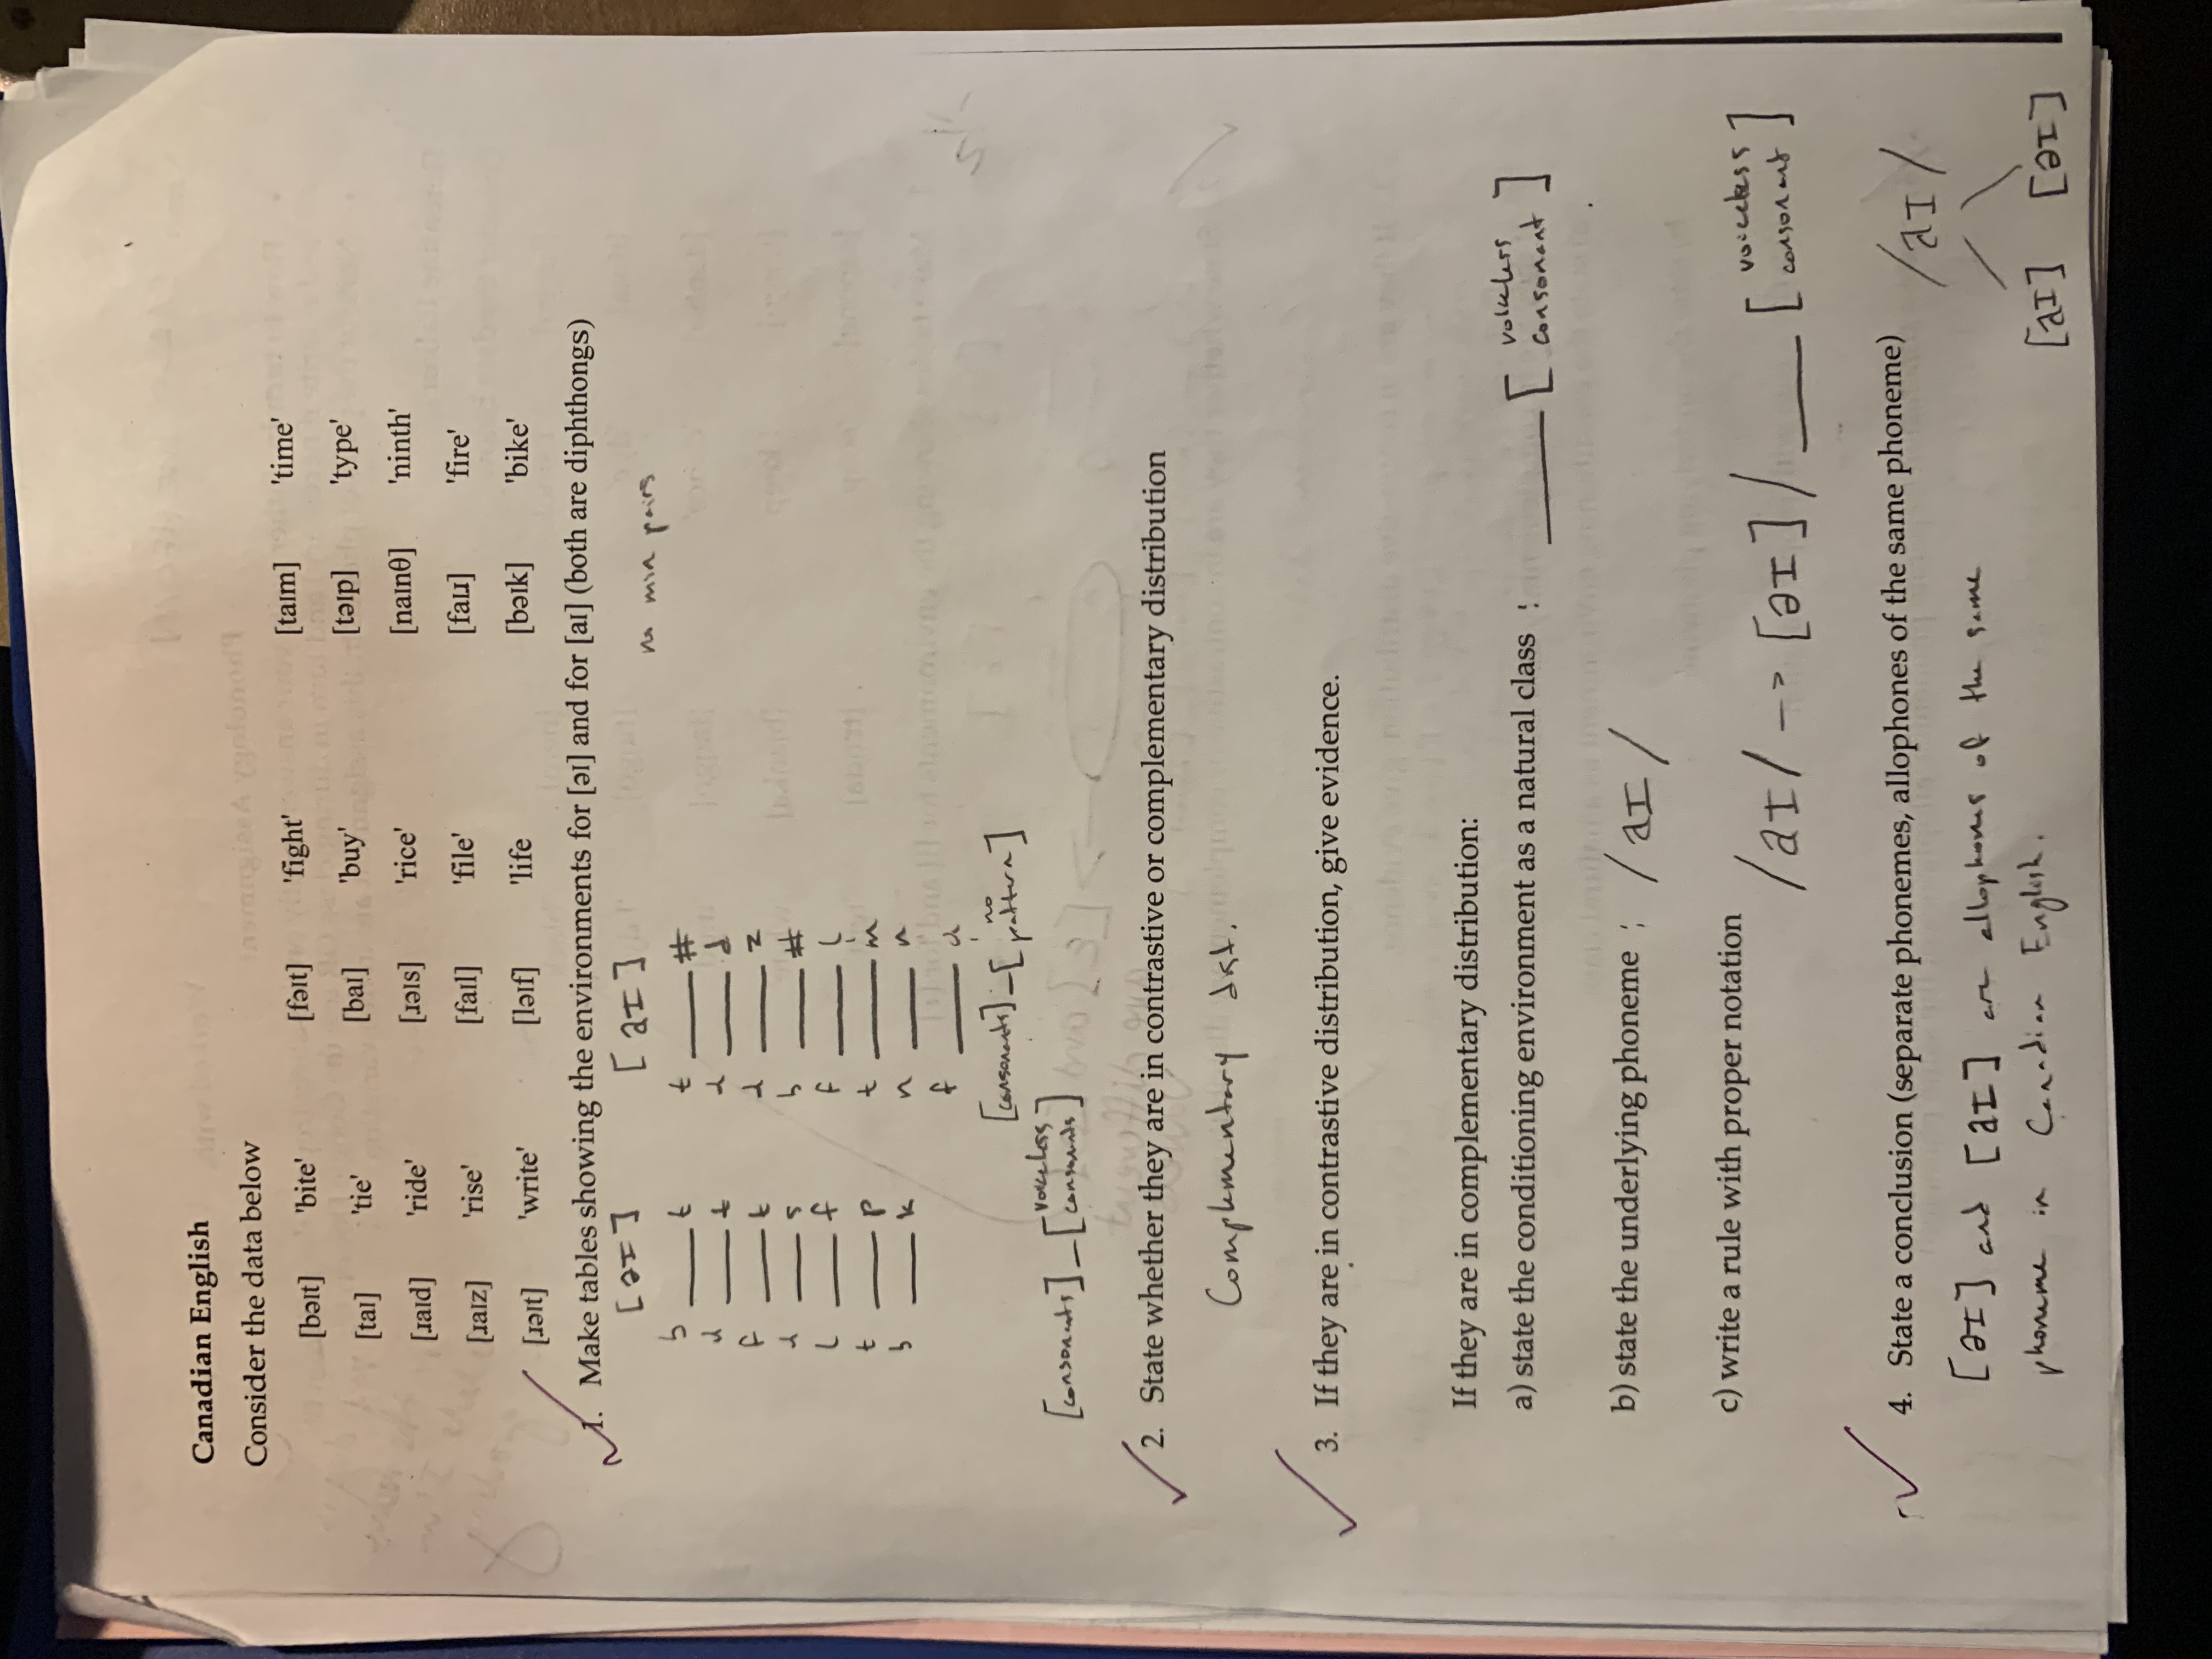 Canadian English
Consider the data below
[bəɪt] 'bite' [fəɪt] 'fight' [taɪm] 'time'
[taɪ] 'tie' [baɪ] 'buy' [təɪp] 'type'
[ɹaɪd] 'ride' [ɹəɪs] 'rice' [naɪnθ] 'ninth'
[ɹaɪz] 'rise' [faɪl] 'file' [faɪɹ] 'fire'
[ɹəɪt] 'write' [ləɪf] 'life [bəɪk] 'bike'
1. Make tables showing the environments for [əɪ] and for [aɪ] (both are diphthongs)
[əɪ] [aɪ] no min pairs
b ___ t t ___ #
ɹ ___ t ɹ ___ d
f ___ t ɹ ___ z
ɹ ___ s b ___ #
l ___ f f ___ l
t ___ p t ___ m
b ___ k n ___ n
f ___ ɹ
[consonants]_[no pattern]
[consonants]_[voiceless consonants]
2. State whether they are in contrastive or complementary distribution
Complementary dist.
3. If they are in contrastive distribution, give evidence.
If they are in complementary distribution:
a) state the conditioning environment as a natural class : ___ [voiceless consonant]
b) state the underlying phoneme : /aɪ/
c) write a rule with proper notation /aɪ/ --> [əɪ] / ___ [voiceless consonant]
4. State a conclusion (separate phonemes, allophones of the same phoneme) /aɪ/
[əɪ] and [aɪ] are allophones of the same
phoneme in Canadian English.
[aɪ] [əɪ]